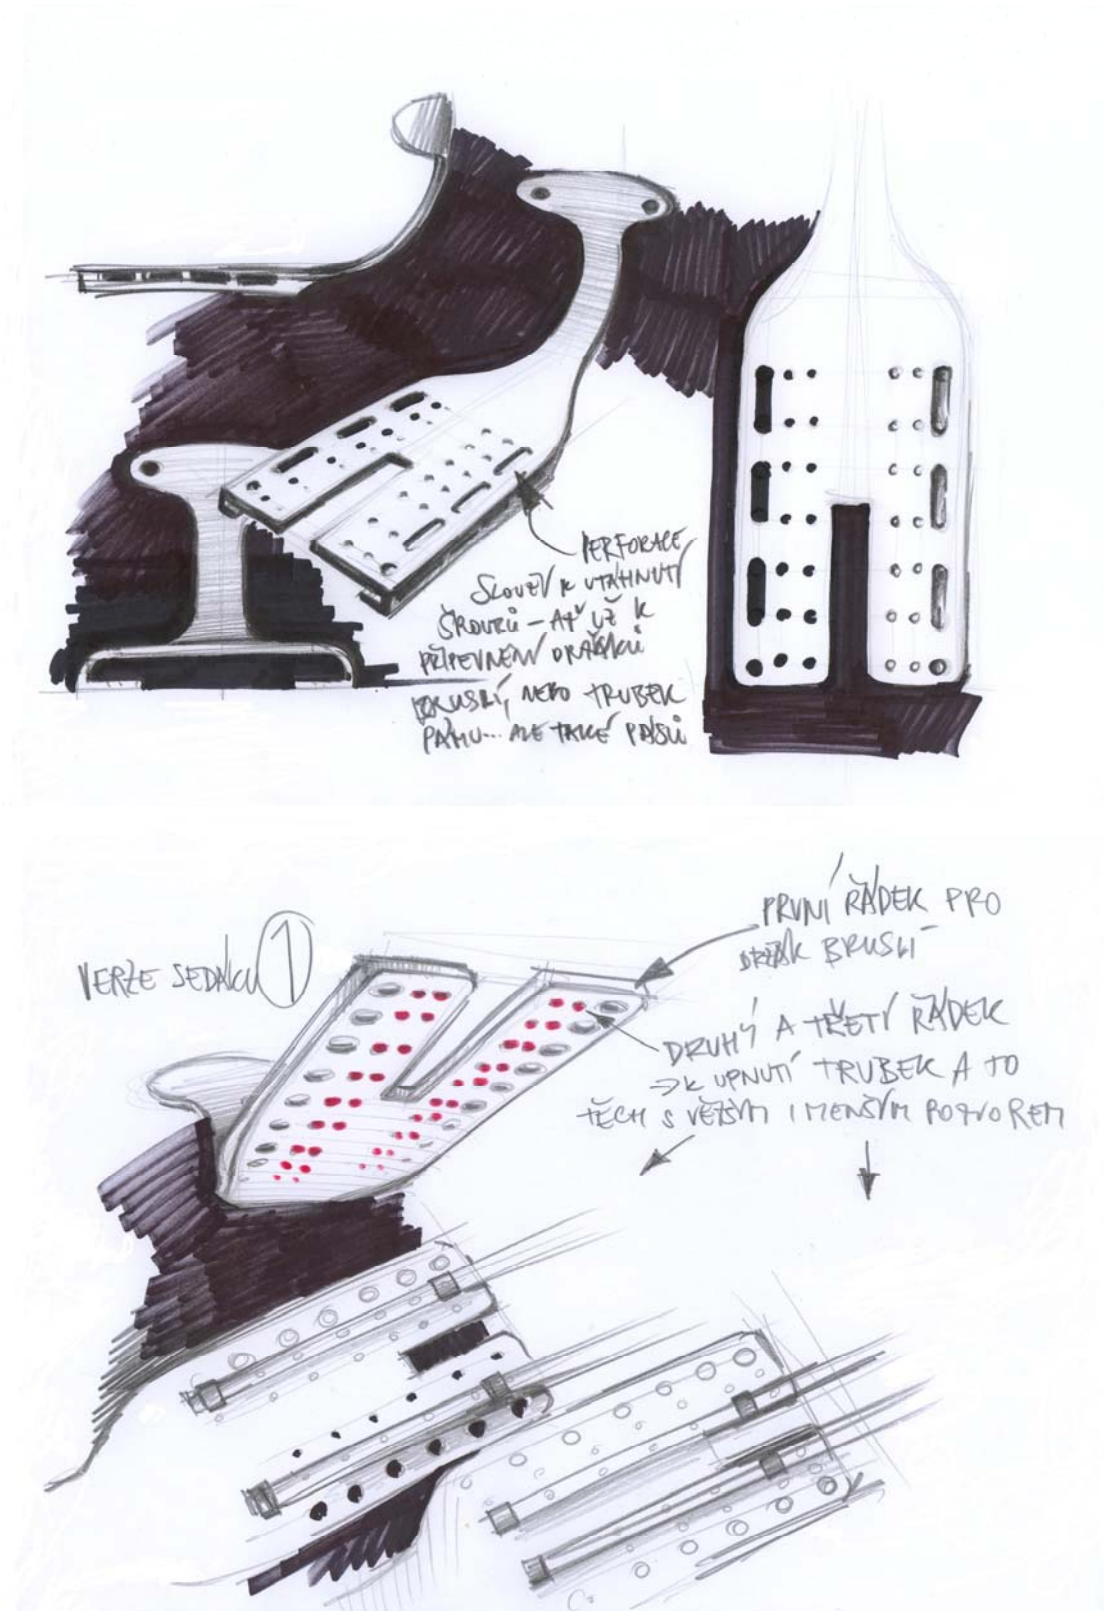 PERFORACE
SLOUŽÍ K UTÁHNUTÍ
ŠROUBŮ - AŤ UŽ K
PŘIPEVNĚNÍ DRŽÁKŮ
BRUSLÍ, NEBO TRUBEK
RÁMU... ALE TAKÉ PÁSŮ
VERZE SEDÁKU 1
PRVNÍ ŘÁDEK PRO
DRŽÁK BRUSLÍ
DRUHÝ A TŘETÍ ŘÁDEK
=> K UPNUTÍ TRUBEK A TO
TĚCH S VĚTŠÍM I MENŠÍM POTVOREM